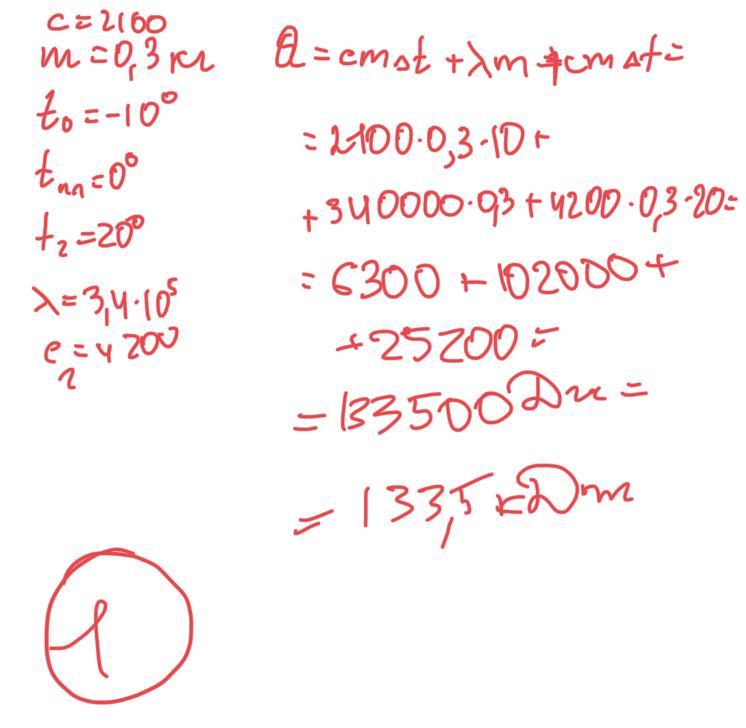 c=2100
m=0,3 кг
t₀=-10°
tпл=0°
t₂=20°
λ=3,4·10⁵
c₂=4200
Q=cmΔt+λm+cmΔt=
=2100·0,3·10+
+340000·0,3+4200·0,3·20=
=6300+102000+
+25200=
=133500Дж=
=133,5кДж
1